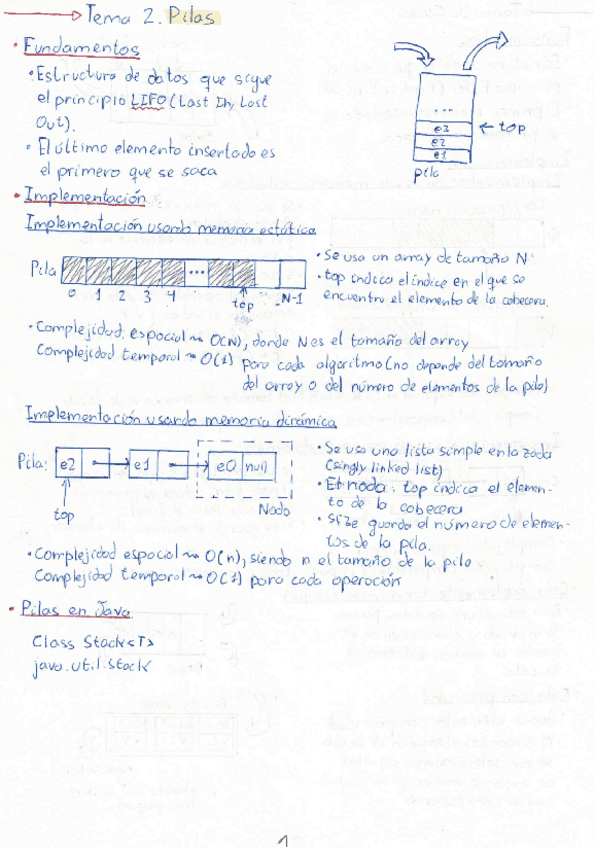 Tema 2. Pilas
• Fundamentos
• Estructura de datos que sigue
el principio LIFO (Last In, Last
Out).
• El último elemento insertado es
el primero que se saca
...
e3
e2
e1
← top
pila
• Implementación
Implementación usando memoria estática
Pila
...
0 1 2 3 4 top N-1
• Se usa un array de tamaño N
• top indica el índice en el que se
encuentra el elemento de la cabecera.
• Complejidad espacial ~ O(N), donde N es el tamaño del array
Complejidad temporal ~ O(1) para cada algoritmo (no depende del tamaño
del array o del número de elementos de la pila)
Implementación usando memoria dinámica
Pila: e2 e1 e0 null
top
Nodo
• Se usa una lista simple enlazada
(singly linked list)
• El nodo top indica el elemen-
to de la cabecera
• size guarda el número de elemen-
tos de la pila.
• Complejidad espacial ~ O(n), siendo n el tamaño de la pila
Complejidad temporal ~ O(1) para cada operación
• Pilas en Java
Class Stack<T>
java.util.Stack
1